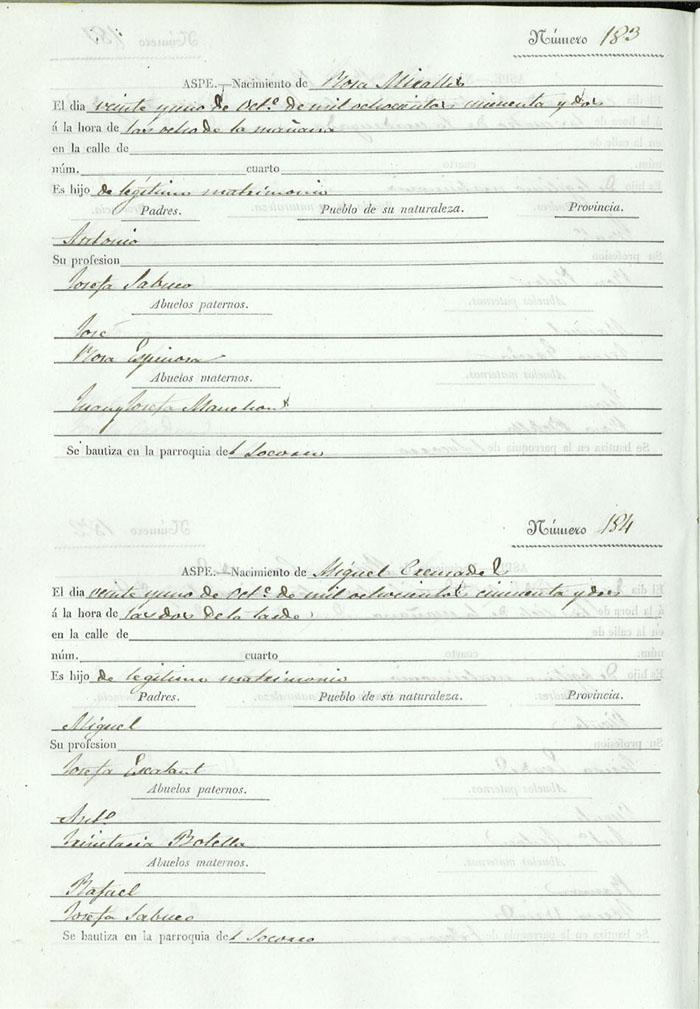 Número 183
ASPE.—Nacimiento de Rosa Miralles
El dia veinte y uno de Oct.e de mil ochocientos cincuenta y dos
á la hora de las ocho de la mañana
en la calle de
núm. cuarto
Es hijo de legitimo matrimonio
Padres. Pueblo de su naturaleza. Provincia.
Antonio
Su profesion
Josefa Sabuco
Abuelos paternos.
José
Rosa Espinosa
Abuelos maternos.
Juan y Josefa Manchon
Se bautiza en la parroquia del Socorro
Número 184
ASPE.—Nacimiento de Miguel Cremades
El dia veinte y uno de Oct.e de mil ochocientos cincuenta y dos
á la hora de las dos de la tarde
en la calle de
núm. cuarto
Es hijo de legitimo matrimonio
Padres. Pueblo de su naturaleza. Provincia.
Miguel
Su profesion
Josefa Escalant
Abuelos paternos.
Ant.o
Trinitaria Botella
Abuelos maternos.
Rafael
Josefa Sabuco
Se bautiza en la parroquia del Socorro